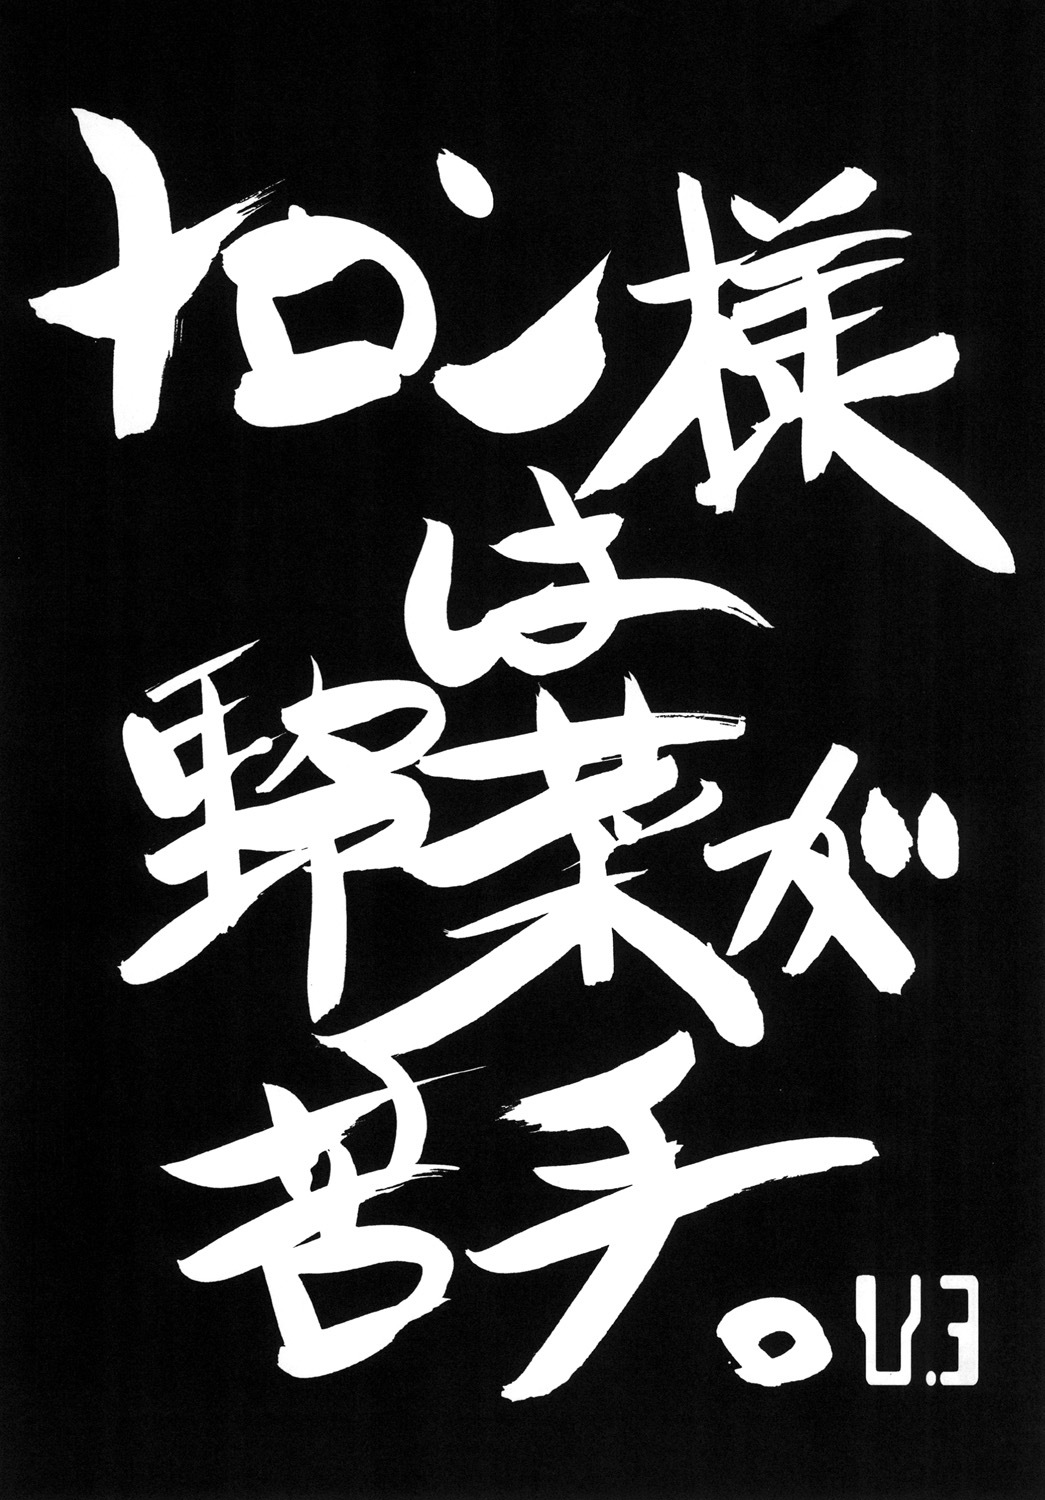 トロン様
は
野菜が
苦手。
V.3